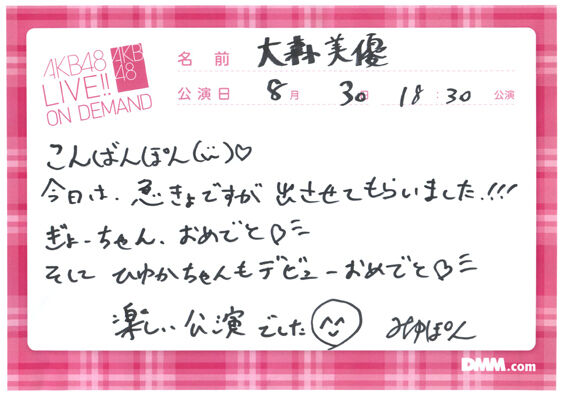 AKB48
LIVE!!
ON DEMAND
AKB
48
名前 大森美優
公演日 8月 30日 18:30 公演
こんばんぽん(¨̮)♡
今日は、急きょですが出させてもらいました!!!
ぎょーちゃん、おめでと♡
そして ひゆかちゃんもデビューおめでと♡
楽しい公演でした^^
みゆぽん
DMM.com